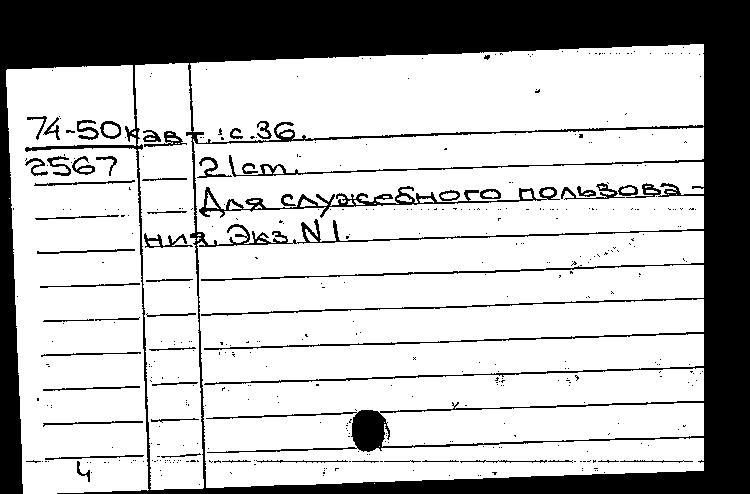 74-50 кавт.:с.36.
2567 21cm.
Для служебного пользова-
ния. Экз. N 1.
4